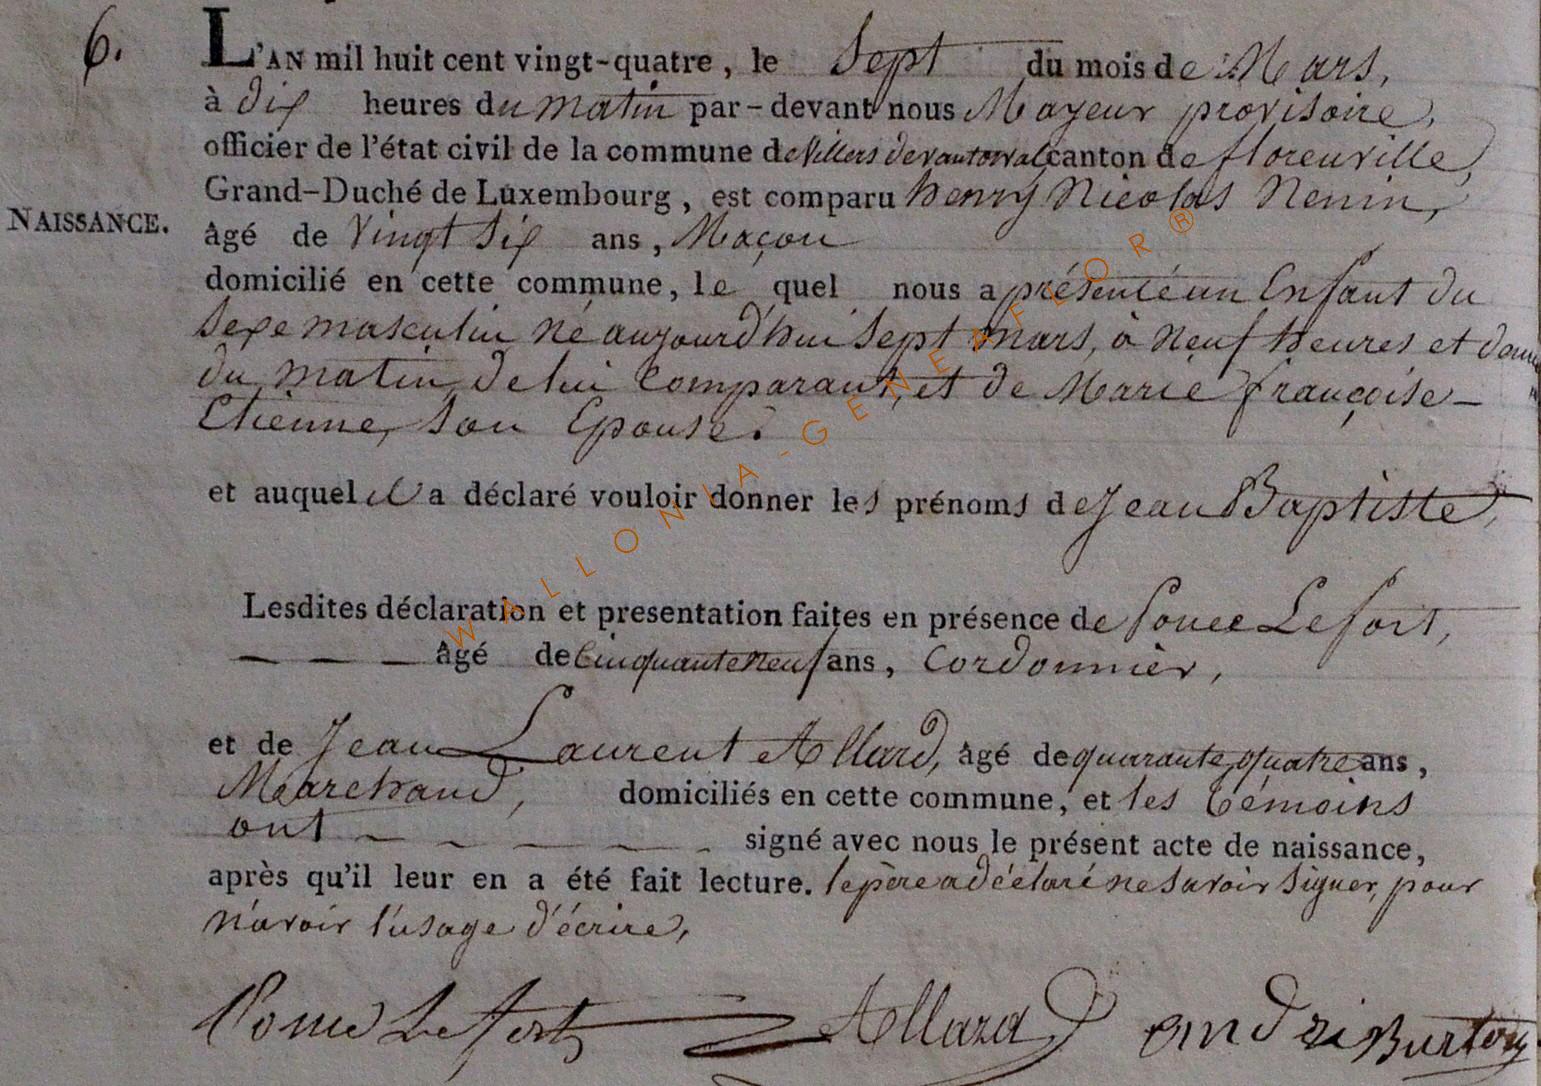 6.
L'AN mil huit cent vingt-quatre, le Sept du mois de Mars,
à dix heures du matin par-devant nous Mayeur provisoire,
officier de l'état civil de la commune de Villers devant orval canton de florenville,
Grand-Duché de Luxembourg, est comparu henry Nicolas Nenin,
NAISSANCE.
âgé de Vingt Six ans, Maçon
domicilié en cette commune, le quel nous a présenté un Enfant du
Sexe masculin né aujourd'hui Sept mars, à Neuf heures et demie
du matin, de lui Comparant, et de Marie françoise-
Etienne, Son Epouse.
et auquel il a déclaré vouloir donner les prénoms de Jean Baptiste,
Lesdites déclaration et presentation faites en présence de Lefort,
âgé de Cinquante neuf ans, Cordonnier,
et de Jean Laurent Allard, âgé de quarante quatre ans,
Marchand, domiciliés en cette commune, et les témoins
ont signé avec nous le présent acte de naissance,
après qu'il leur en a été fait lecture. le père a déclaré ne Savoir Signer, pour
n'avoir l'usage d'écrire,
Lefort Allard andré Burtony
WALLONIA-GENEAFLOR®